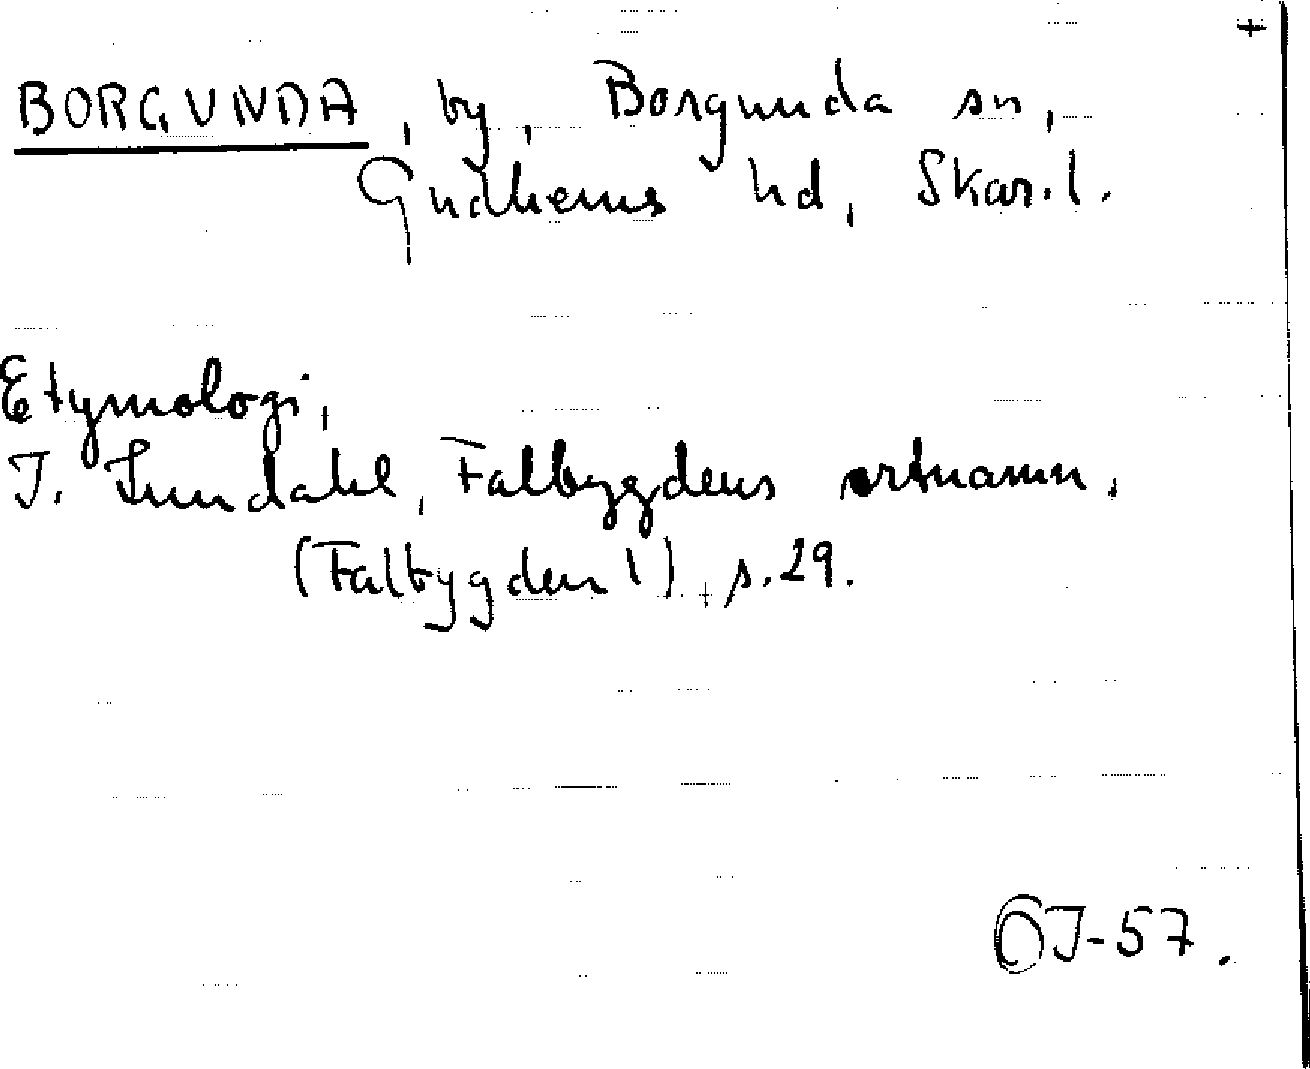 +
BORGUNDA, by, Borgunda sn,
Gudhems hd, Skar.l.
Etymologi,
I. Lundahl, Falbygdens ortnamn,
(Falbygden 1), s. 29.
OJ-57.